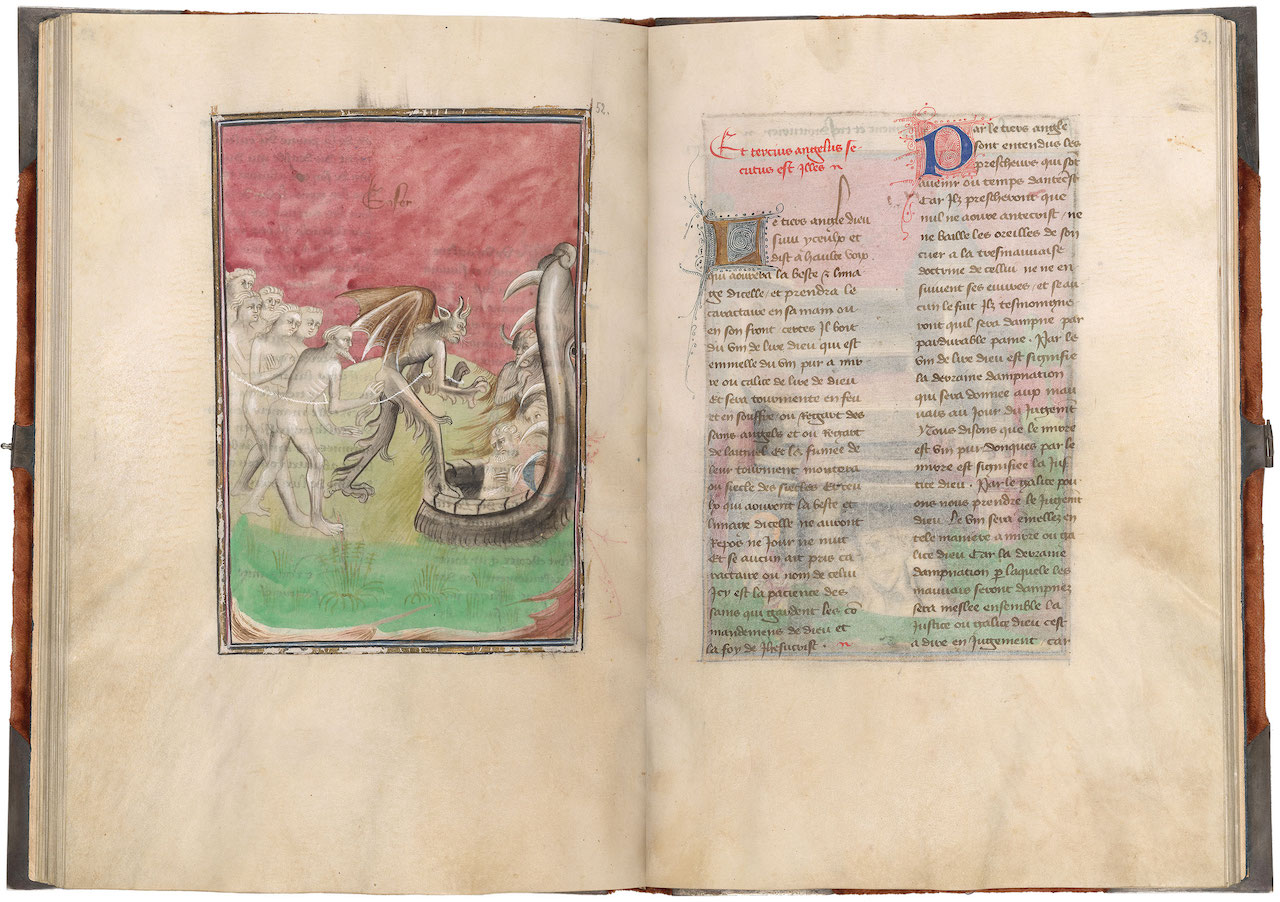 52.
Enfer
53.
Et tercius angelus se-
cutus est illes n
Le tiers angle dieu
suiui yceulx et
dist a haulte voix
qui aourera la beste & lima
ge dicelle / et prendra le
caractaire en sa main ou
en son front certes Il boit
du vin de lire dieu qui est
emmelle du vin pur a mir
re ou calice de lire de dieu
Et sera tourmente en feu
et en souffre / ou Regart des
sains angels et ou Regart
de laignel Et la fumee de
leur tourment montera
ou siecle des siecles Et ceu
lx qui aourent la beste et
limage dicelle ne auront
Repos ne Jour ne nuit
Et se aucun ait pris ca
ractaire ou nom de celui
Icy est la pacience des
sains qui gardent les co
mandemens de dieu et
la foy de Ihesucrist . n
Par le tiers angle
sont entendus les
prescheurs qui sot
auenir ou temps dantecst
Car Ilz prescheront que
nul ne aoure antecrist / ne
ne baille les oreilles de son
cuer a la tresmauuaise
doctrine de cellui ne ne en
suiuent ses euures / et se au
cun le fait Ilz tesmoigne
ront quil sera dampne par
pardurable paine . Par le
vin de lire dieu est signifie
la derraine dampnation
qui sera donnee aux mau
uais au Jour du Jugemt
Nous disons que le mirre
est vin pur donques par le
mirre est signifiee la Jus
tice dieu . Par le galice pou
ons nous prendre le Jugemt
dieu Le vin sera emellez en
tele maniere a mirre ou ga
lice dieu Car la derraine
dampnation p laquele les
mauuais seront dampnez
sera meslee ensemble la
Justice ou galice dieu cest
a dire en Jugement car